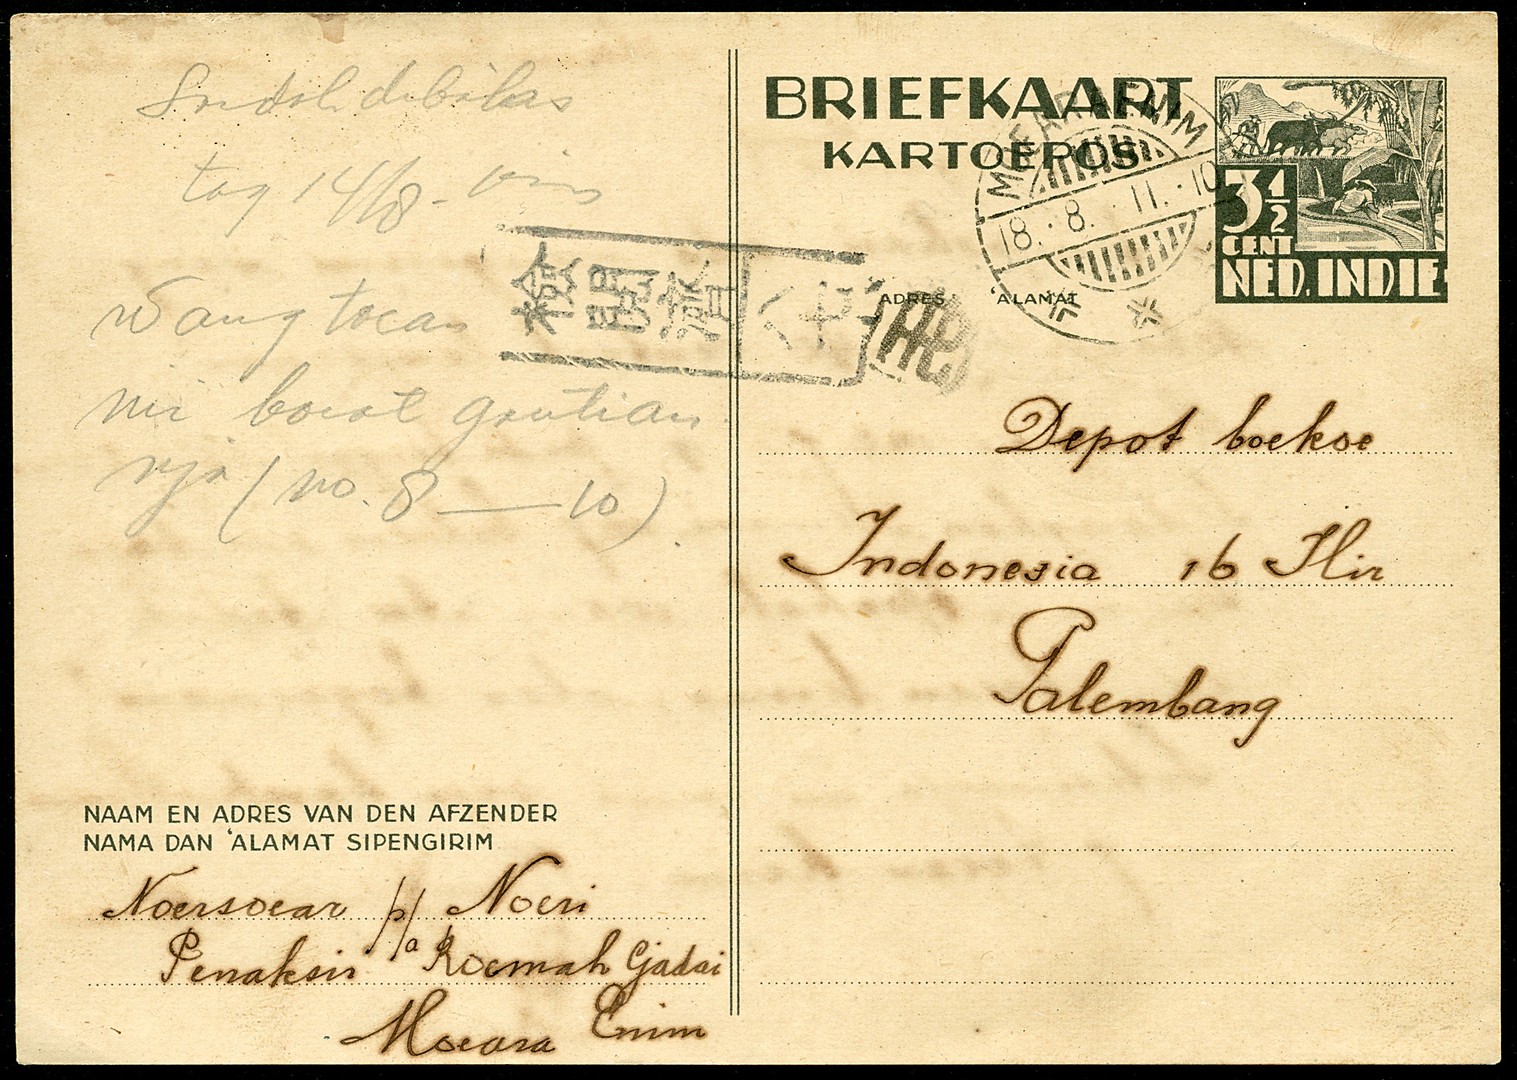 Soedah dibalas
tag 14/8 -
Wang toean
boeat gantian
nja (no. 8 — 10)
BRIEFKAART
KARTOEPOS
MOEARAENIM
18.8.11.10
3 1/2
CENT
NED. INDIE
檢閲濟
ADRES 'ALAMAT
Depot boekoe
Indonesia 16 Ilir
Palembang
NAAM EN ADRES VAN DEN AFZENDER
NAMA DAN 'ALAMAT SIPENGIRIM
Noersoear p/a Noeri
Penaksir Roemah Gadai
Moeara Enim